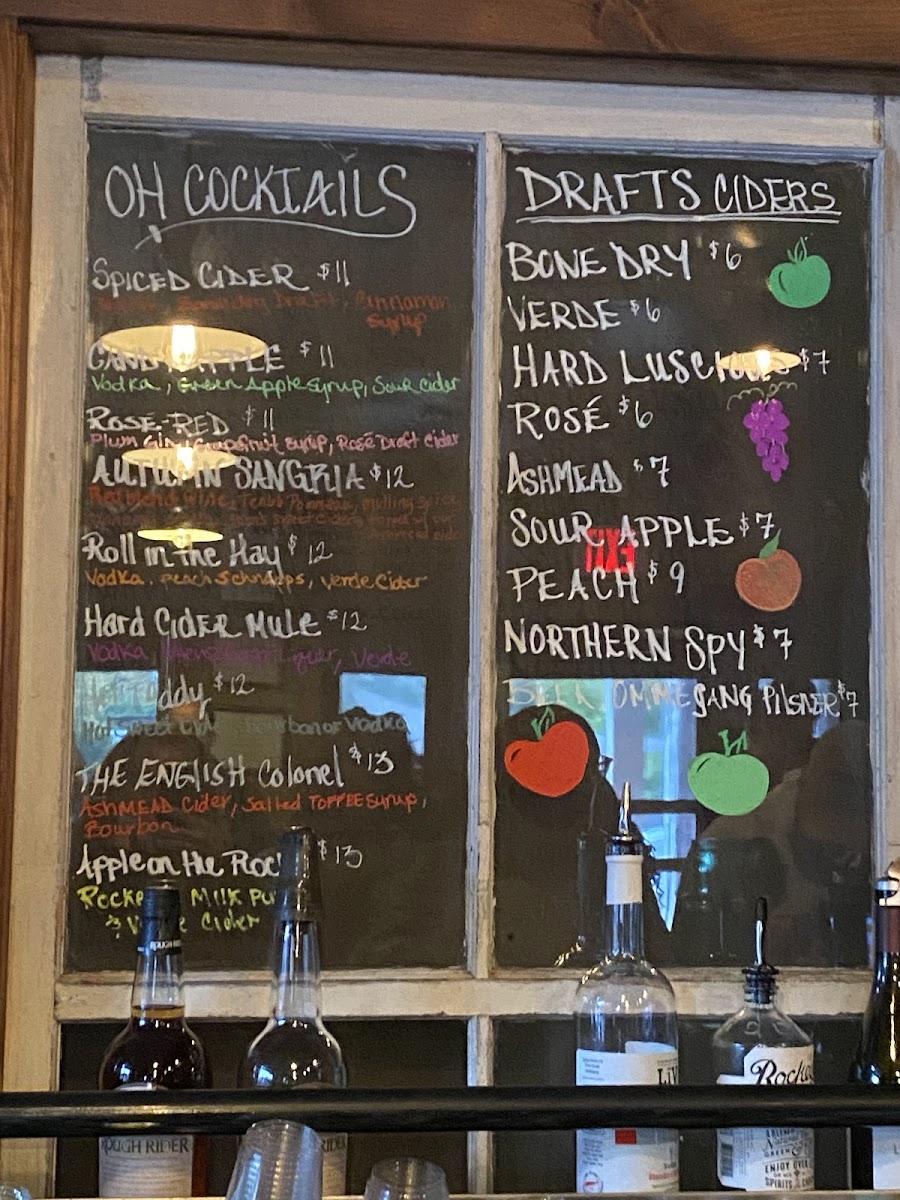 OH COCKTAILS
SPICED CIDER $11
Cinnamon
Syrup
CANDY APPLE $11
Vodka, Green Apple Syrup, Sour Cider
ROSÉ-RED $11
Plum Gin, Grapefruit Syrup, Rosé Draft Cider
AUTUMN SANGRIA $12
Roll in the Hay $12
Vodka, Peach Schnapps, Verde Cider
Hard CIDER MULE $12
Vodka, Verde
Hot Toddy $12
Hot Sweet Bourbon or Vodka
THE ENGLISH Colonel $13
ASHMEAD Cider, Salted TOFFEE Syrup,
Bourbon
Apple on the Roc $13
Rocke Milk Pu
Cider
DRAFTS CIDERS
BONE DRY $6
VERDE $6
HARD LUSCIOUS $7
ROSÉ $6
ASHMEAD $7
SOUR APPLE $7
PEACH $9
NORTHERN SPY $7
BEER OMMEGANG PILSNER $7
ROUGH RIDER
ROUGH RIDER
RIDER
LiV
Vodka
Rocke
ENJOY OVER
SPIRITS